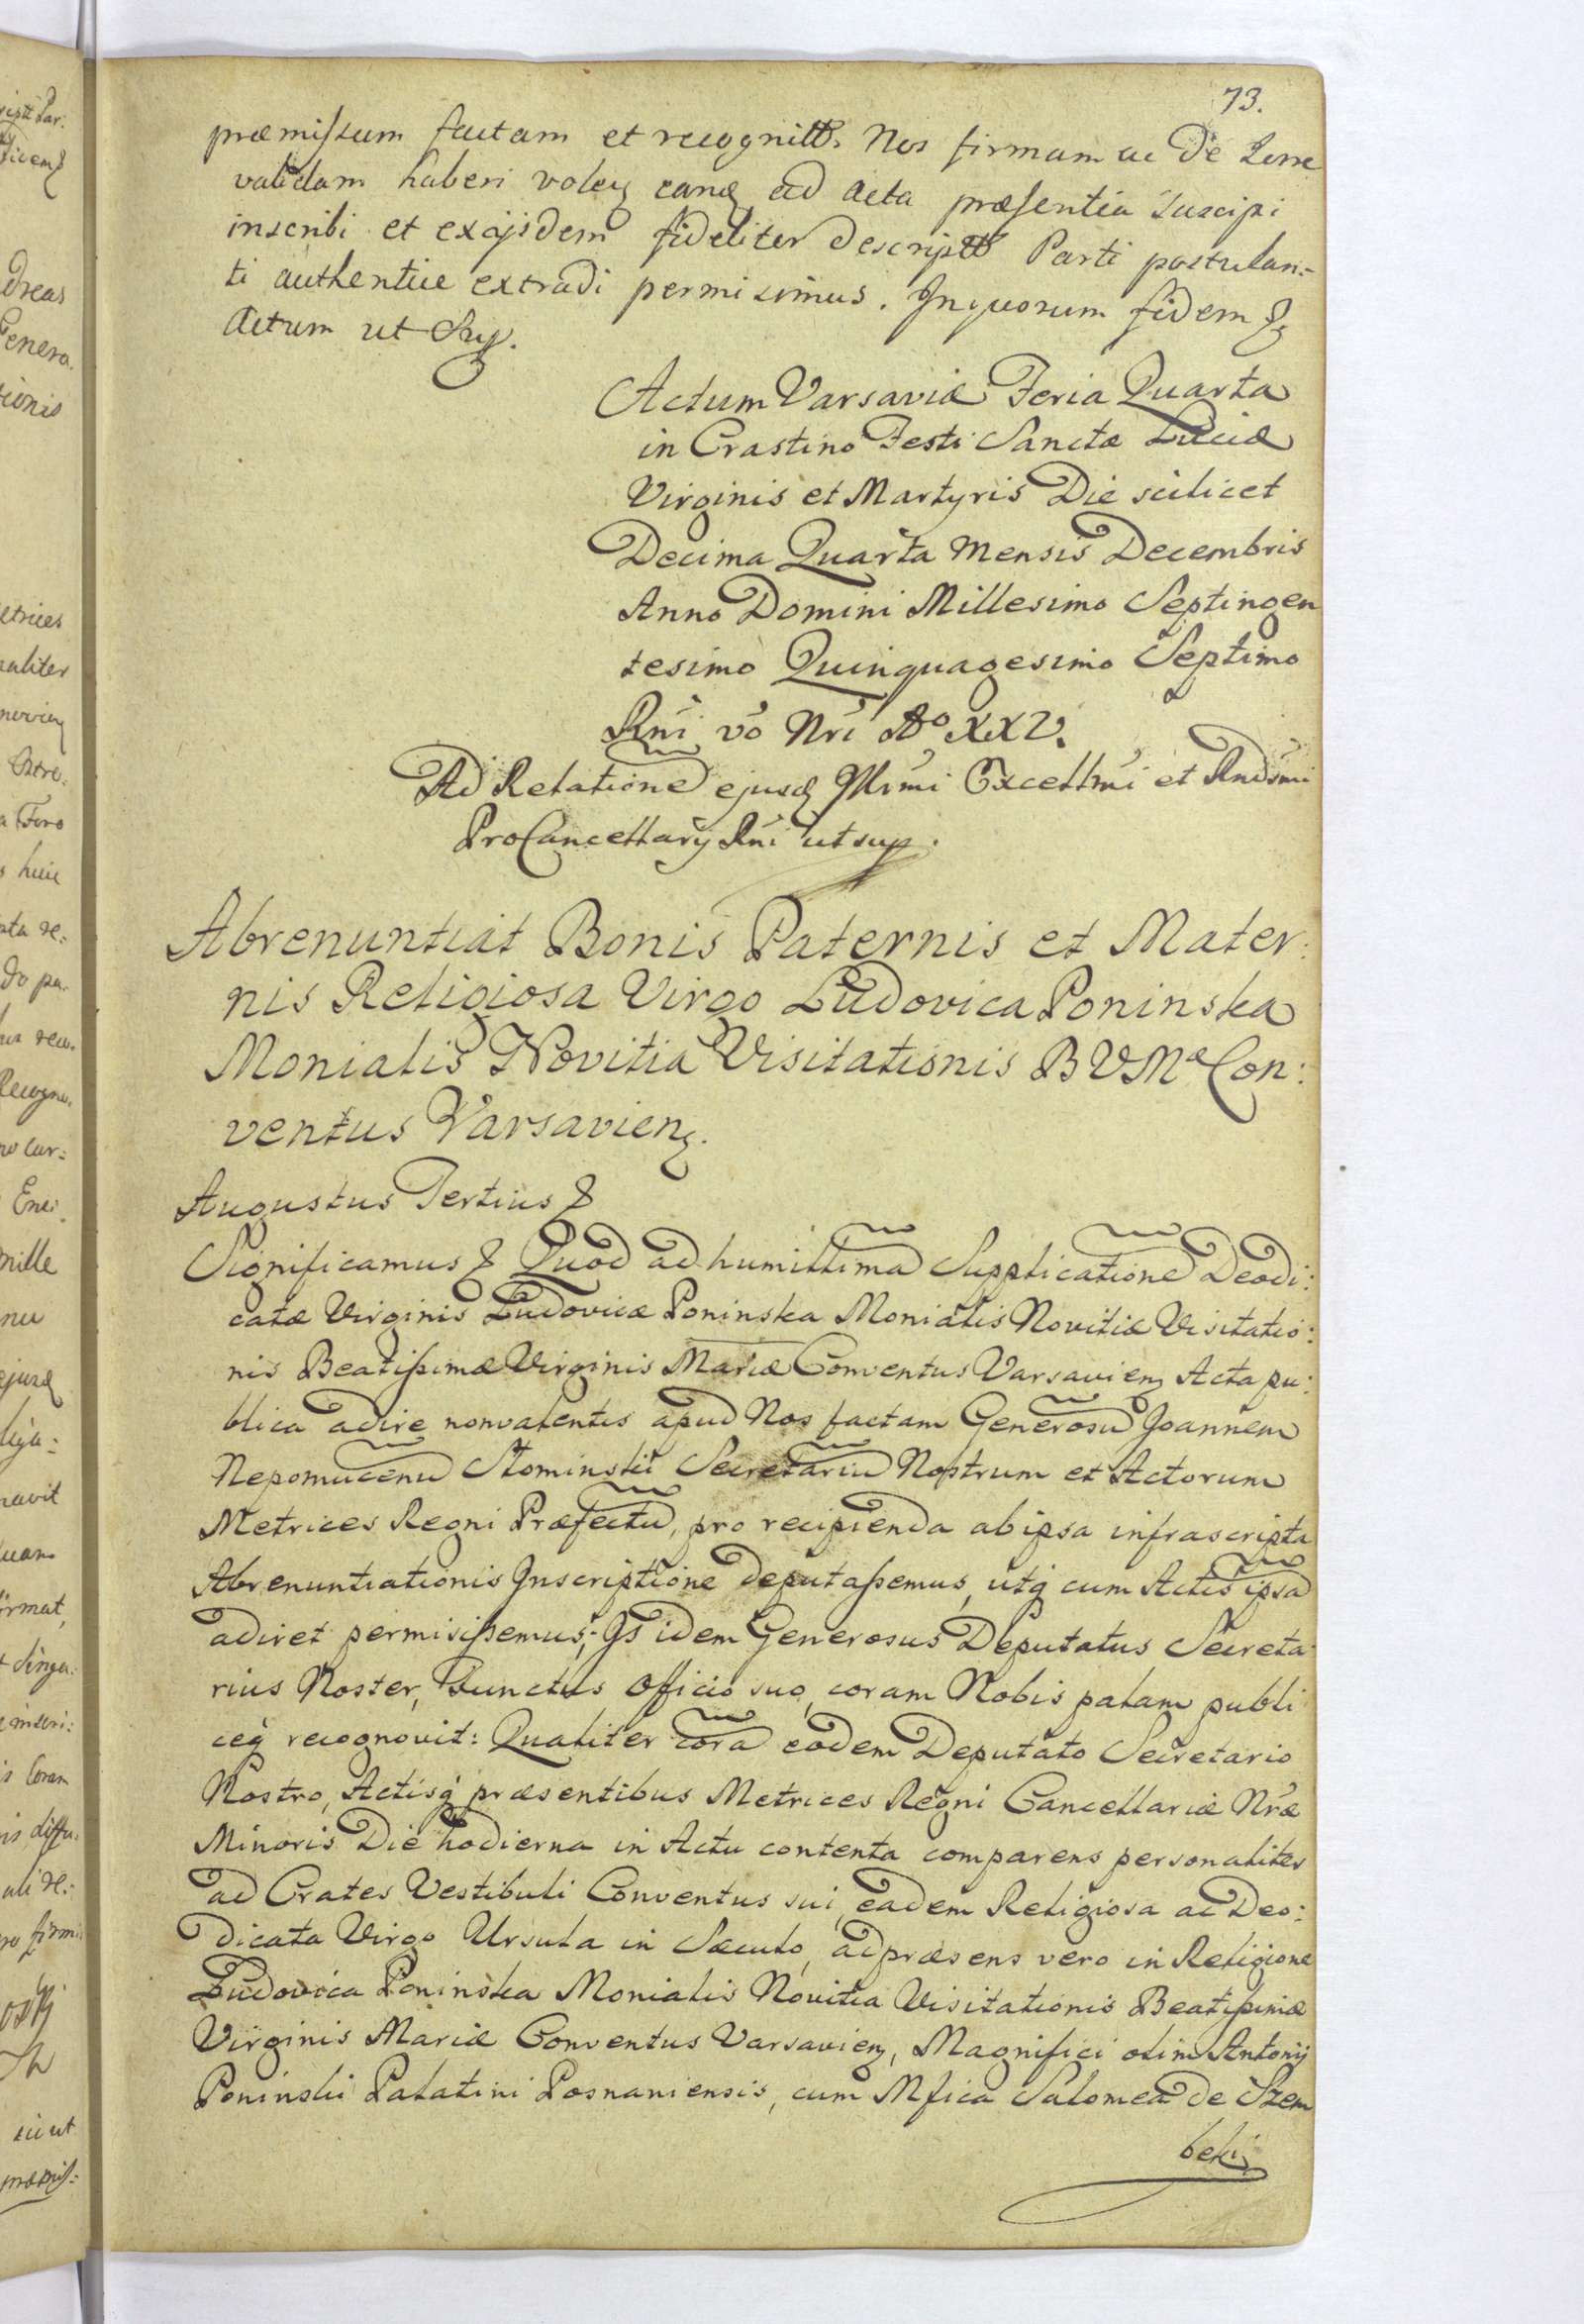 73.
præmissum factam et recognitt. Nos firmam ac de Lerre
validam haberi volen eamq ad Acta præsentia suscipi
inscribi et exijsdem fideliter descriptt Parti postulan:
ti authentice extradi permisimus. Inquorum fidem &
Actum ut Sup.
Actum Varsaviæ Feria Quarta
in Crastino Festi Sanctæ Luciæ
Virginis et Martyris Die scilicet
Decima Quarta Mensis Decembris
Anno Domini Millesimo Septingen
tesimo Quinquagesimo Septimo
Rni vo Nri Ao XXV.
Ad Relatione ejusq Illrmi Excellmi et Rndsmi
ProCancellarij Rni ut sup.
Abrenuntiat Bonis Paternis et Mater:
nis Religiosa Virgo Ludovica Poninska
Monialis Novitia Visitationis BVMæ Con:
ventus Varsavien.
Augustus Tertius &
Significamus & Quod ad humillima Supplicatione Deodi:
catæ Virginis Ludovicæ Poninska Monialis Novitiæ Visitatio:
nis Beatissimæ Virginis Mariæ Conventus Varsavien Acta pu:
blica adire nonvalentis apud Nos factam Generosu Joannem
Nepomucenu Słominski Secretariu Nostrum et Actorum
Metrices Regni Præfectu, pro recipienda abipsa infrascripta
Abrenuntiationis Inscriptione deputassemus, utq cum Actis ipsa
adiret permisissemus; Is idem Generosus Deputatus Secreta
rius Noster, Functus Officio suo, coram Nobis palam publi
ceq recognovit: Qualiter cora eodem Deputato Secretario
Nostro, Actisq præsentibus Metrices Regni Cancellariæ Nræ
Minoris Die hodierna in Actu contenta comparens personaliter
ad Crates Vestibuli Conventus sui, eadem Religiosa ac Deo:
dicata Virgo Ursula in Sæculo, adpræsens vero in Religione
Ludovica Poninska Monialis Novitia Visitationis Beatissimæ
Virginis Mariæ Conventus Varsavien, Magnifici olim Antonij
Poninski Palatini Posnaniensis, cum Mfica Salomea de Szem
beki